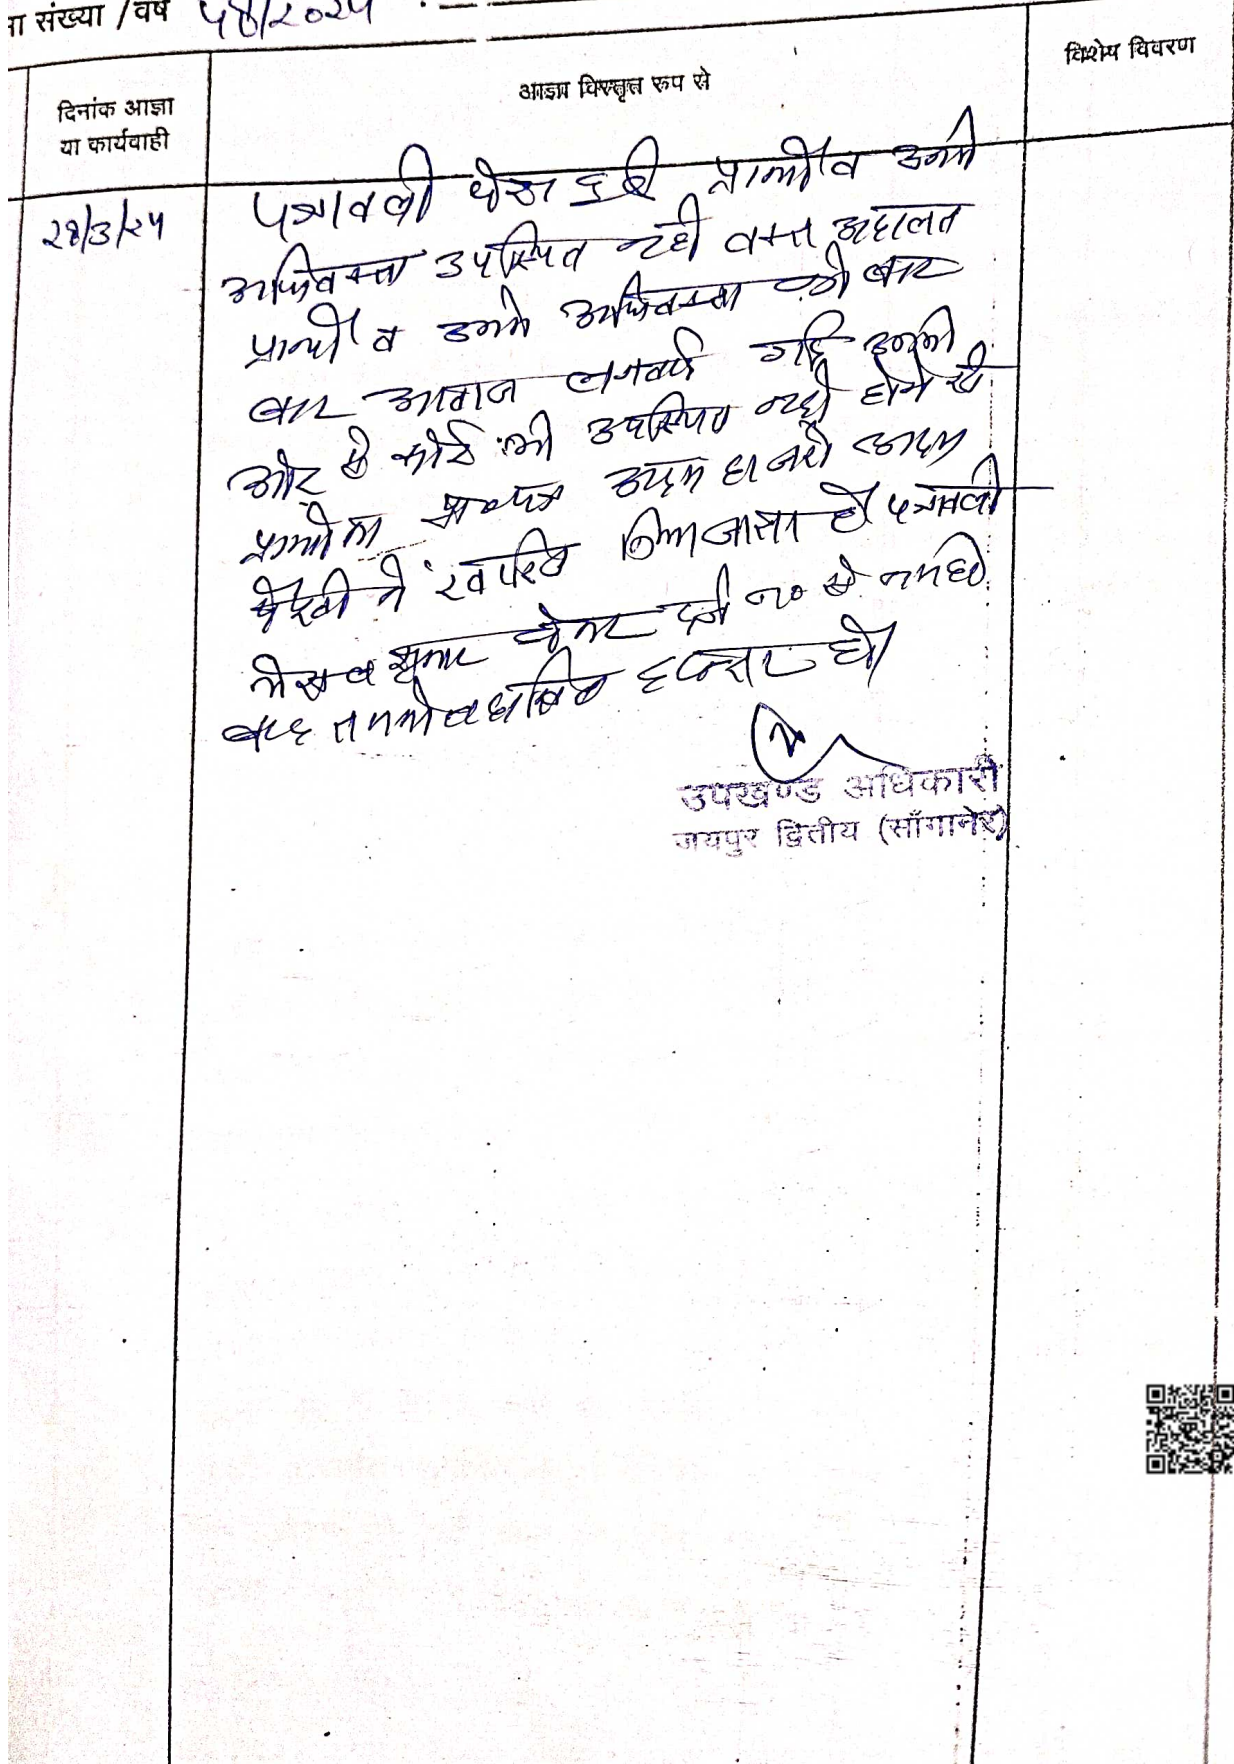 ना संख्या / वर्ष ५8/२०२५
दिनांक आज्ञा
या कार्यवाही
आज्ञा विस्तृत रुप से
विशेष विवरण
२8/3/२५
पत्रावली पेश हुई प्रार्थी व उनके
अधिवक्ता उपस्थित नही वक्त अदालत
प्रार्थी व उनके अधिवक्ता को बार
बार आवाज लगवाई गई उनकी
ओर से कोई भी उपस्थित नही होने से
प्रार्थी का अदम हाजरी अदम
पैरवी में खारिज किया जाता है पत्रावली
फैसल शुमार होकर दर्ज न० से कम हो
बाद तकमील दाखिल दफ्तर हो।
उपखण्ड अधिकारी
जयपुर द्वितीय (साँगानेर)